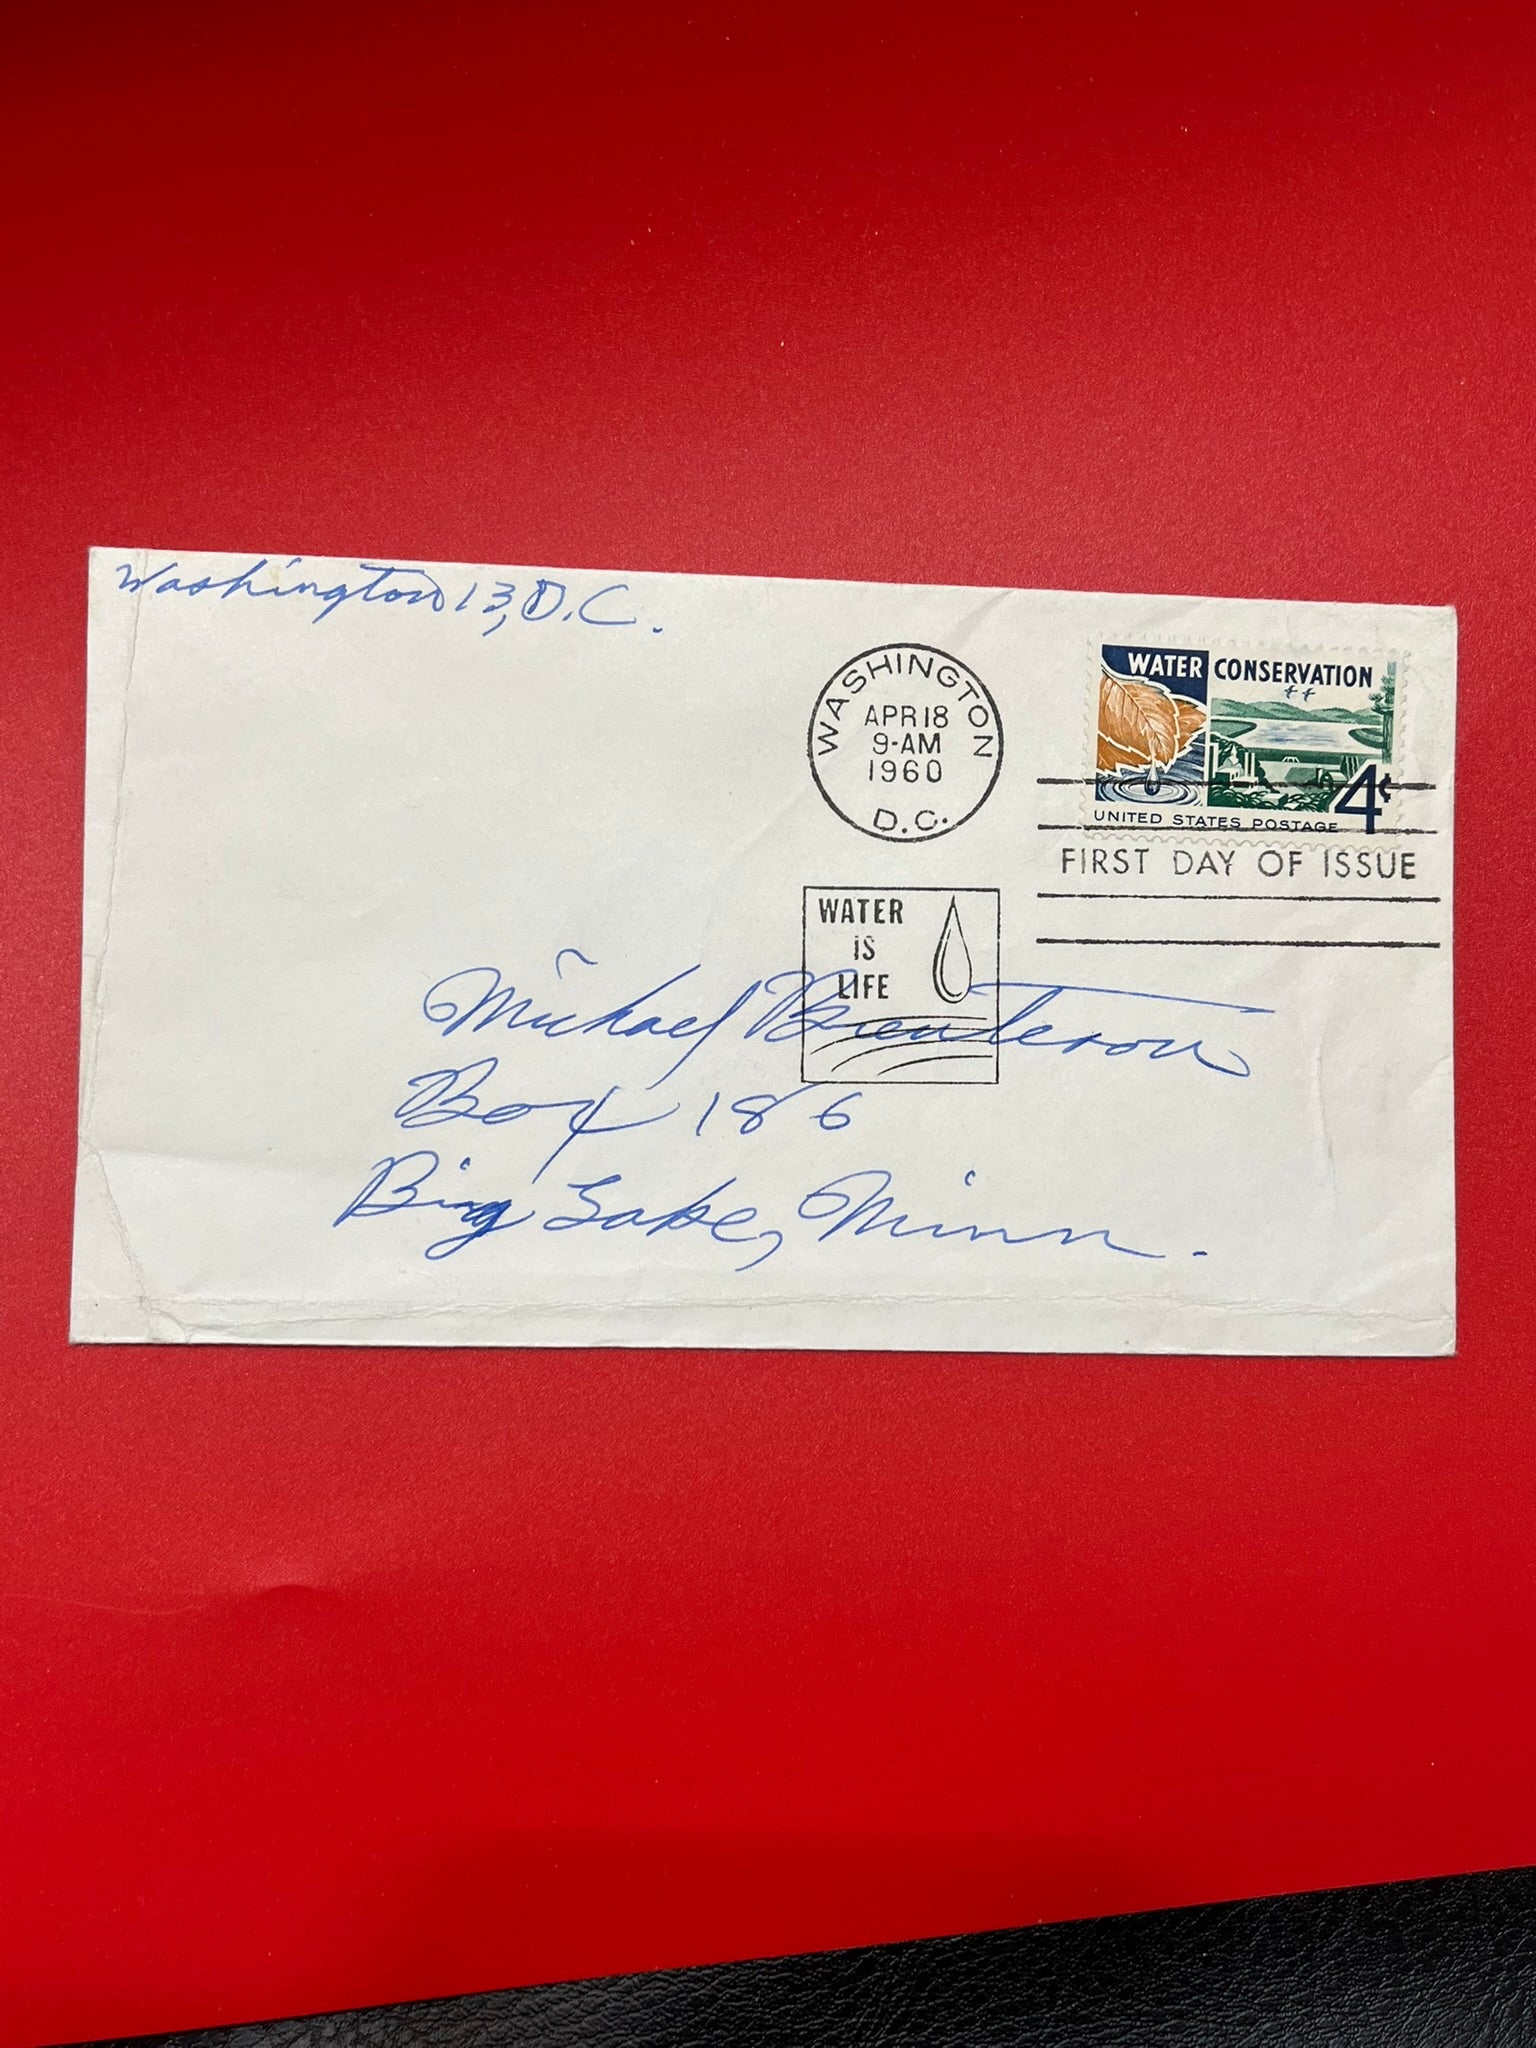 Washington 13, D.C.
WASHINGTON
APR 18
9-AM
1960
D.C.
WATER CONSERVATION
4¢
UNITED STATES POSTAGE
FIRST DAY OF ISSUE
WATER
IS
LIFE
Michael
Box 186
Big Lake, Minn.